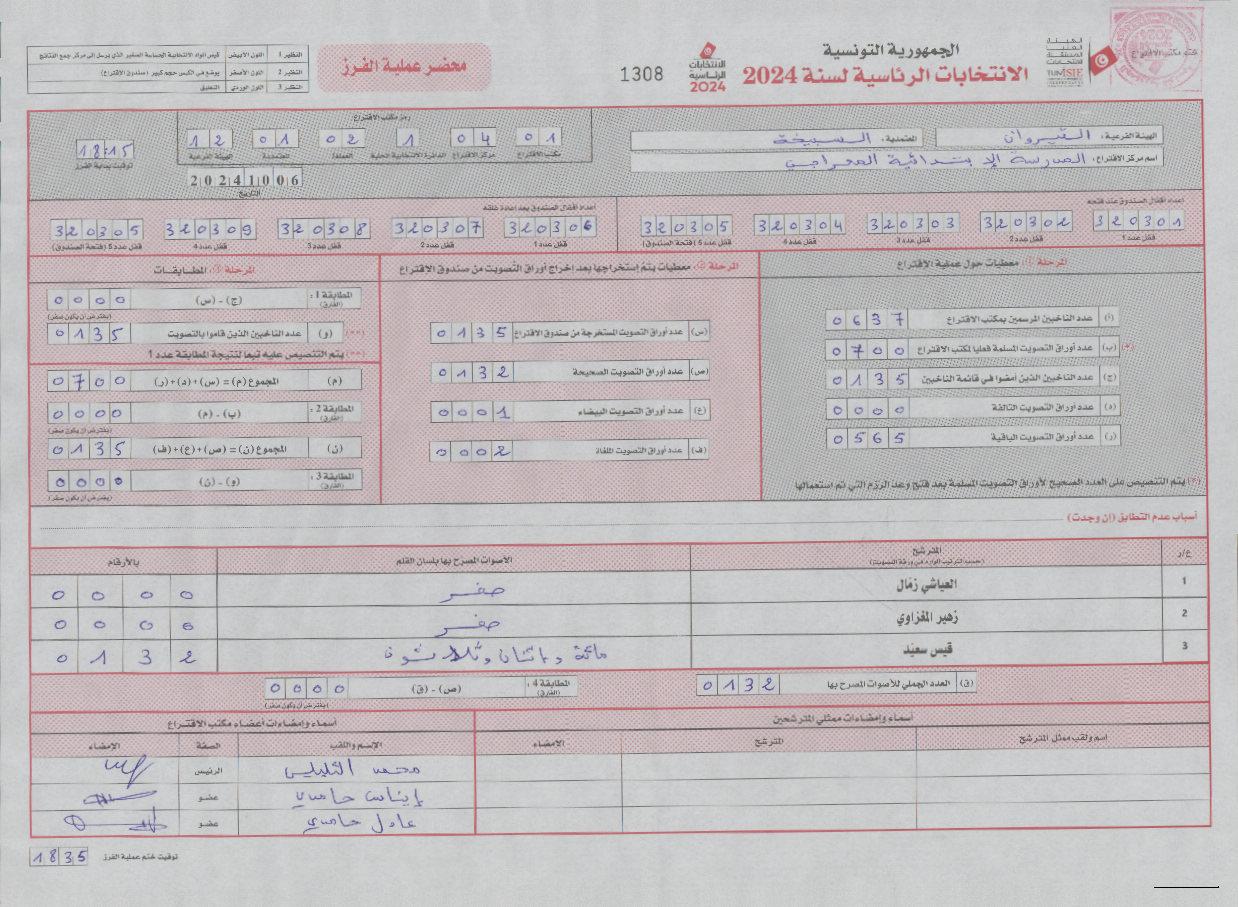 الجمهورية التونسية
الانتخابات الرئاسية لسنة 2024
1308
الانتخابات
الرئاسية
2024
محضر عملية الفرز
النظير 1 اللون الأبيض
النظير 2 اللون الأصفر يوضع في الكيس حجم كبير (صندوق الاقتراع)
النظير 3 اللون الوردي التعليق
ختم مكتب الاقتراع
الهيئة الفرعية: القيروان المعتمدية: السبيخة
اسم مركز الاقتراع: المدرسة الإبتدائية
رمز مكتب الاقتراع
12 01 02 1 04 01
الهيئة الفرعية المعتمدية العمادة الدائرة الانتخابية المحلية مركز الاقتراع مكتب الاقتراع
18:15
توقيت بداية الفرز
20241006
التاريخ
أعداد أقفال الصندوق عند فتحه
320301 320302 320303 320304 320305
قفل عدد 1 قفل عدد 2 قفل عدد 3 قفل عدد 4 قفل عدد 5 (فتحة الصندوق)
أعداد أقفال الصندوق بعد إعادة غلقه
320306 320307 320308 320309 320305
قفل عدد 1 قفل عدد 2 قفل عدد 3 قفل عدد 4 قفل عدد 5 (فتحة الصندوق)
المرحلة ①: معطيات حول عملية الاقتراع
(أ) عدد الناخبين المرسمين بمكتب الاقتراع 0637
(*) (ب) عدد أوراق التصويت المسلمة فعليا لمكتب الاقتراع 0700
(ج) عدد الناخبين الذين أمضوا في قائمة الناخبين 0135
(د) عدد أوراق التصويت التالفة 0000
(ر) عدد أوراق التصويت الباقية 0565
(*) يتم التنصيص على العدد الصحيح لأوراق التصويت المسلمة بعد فتح وعد الرزم التي تم استعمالها
المرحلة ②: معطيات يتم إستخراجها بعد اخراج أوراق التصويت من صندوق الاقتراع
(س) عدد أوراق التصويت المستخرجة من صندوق الاقتراع 0135
(ص) عدد أوراق التصويت الصحيحة 0132
(ع) عدد أوراق التصويت البيضاء 0001
(ف) عدد أوراق التصويت الملغاة 0002
المرحلة ③: المطابقات
المطابقة 1: (الفارق) (ج) - (س) 0000
(يفترض أن يكون صفر)
(**) (و) عدد الناخبين الذين قاموا بالتصويت 0135
(**) يتم التنصيص عليه تبعا لنتيجة المطابقة عدد 1
(م) المجموع (م) = (س)+(د)+(ر) 0700
المطابقة 2: (الفارق) (ب) - (م) 0000
(يفترض أن يكون صفر)
(ن) المجموع (ن) = (ص)+(ع)+(ف) 0135
المطابقة 3: (الفارق) (و) - (ن) 0000
(يفترض أن يكون صفر)
أسباب عدم التطابق (إن وجدت)
ع/ر المترشح الأصوات المصرح بها بلسان القلم بالأرقام
(حسب الترتيب الوارد في ورقة التصويت)
1 العياشي زمّال صفر 0000
2 زهير المغزاوي صفر 0000
3 قيس سعيّد مائة و إثنان وثلاثون 0132
(ق) العدد الجملي للأصوات المصرح بها 0132
المطابقة 4: (الفارق) (ص) - (ق) 0000
(يفترض أن يكون صفر)
أسماء وإمضاءات ممثلي المترشحين
اسم ولقب ممثل المترشح المترشح الامضاء
أسماء وإمضاءات أعضاء مكتب الاقتراع
الإسم واللقب الصفة الإمضاء
محمد الرئيس
إيناس حامدي عضو
عادل حامدي عضو
توقيت ختم عملية الفرز 1835